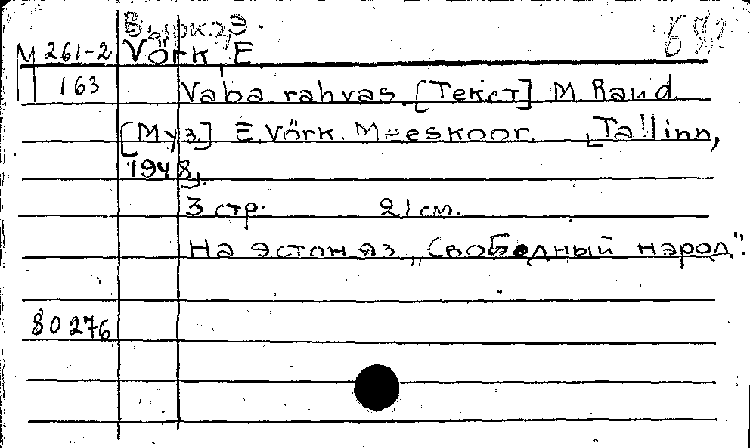 Вырк, Э.
М 261-2 Võrk, E
163 Vaba rahvas [Текст] M. Raud
[Муз] E. Võrk. Meeskoor. [Tallinn,
1948].
3 стр. 21 см.
На эстон яз „Свободный народ".
80276